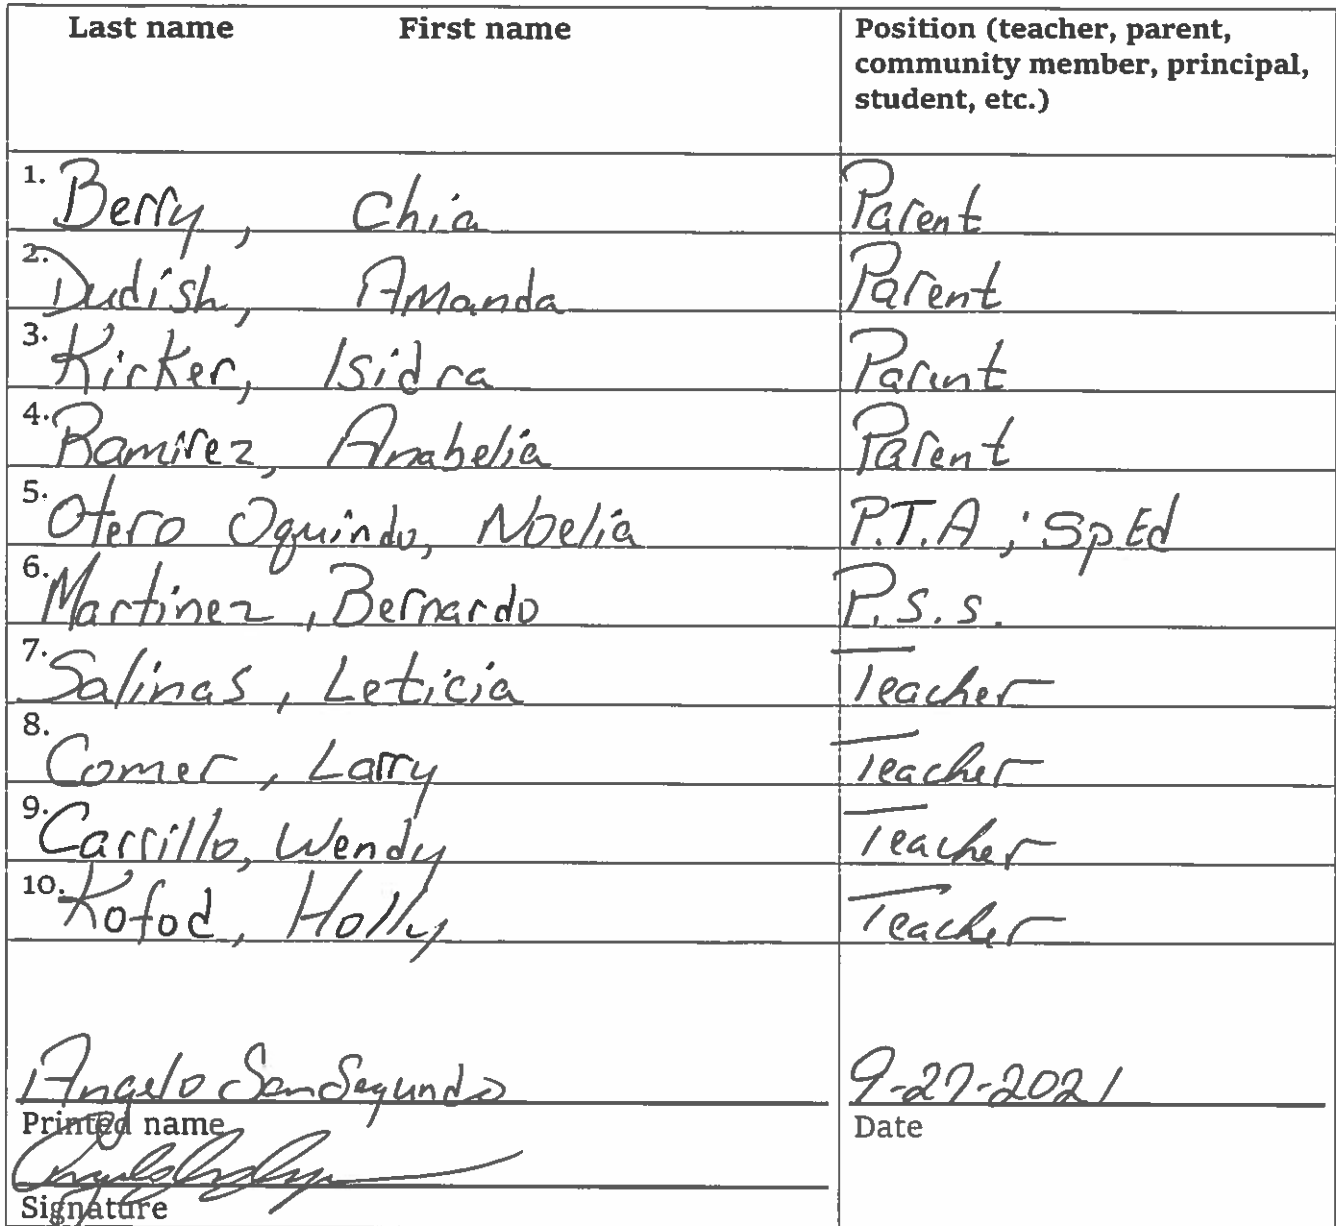 Last name First name Position (teacher, parent,
community member, principal,
student, etc.)
1. Berry, Chia Parent
2. Dudish, Amanda Parent
3. Kirker, Isidra Parent
4. Ramirez, Anabelia Parent
5. Otero Oquindo, Noelia P.T.A ; Sp Ed
6. Martinez, Bernardo P.S.S.
7. Salinas, Leticia Teacher
8. Comer, Larry Teacher
9. Carrillo, Wendy Teacher
10. Kofod, Holly Teacher
Angelo SanSegundo 9-27-2021
Printed name Date
Signature